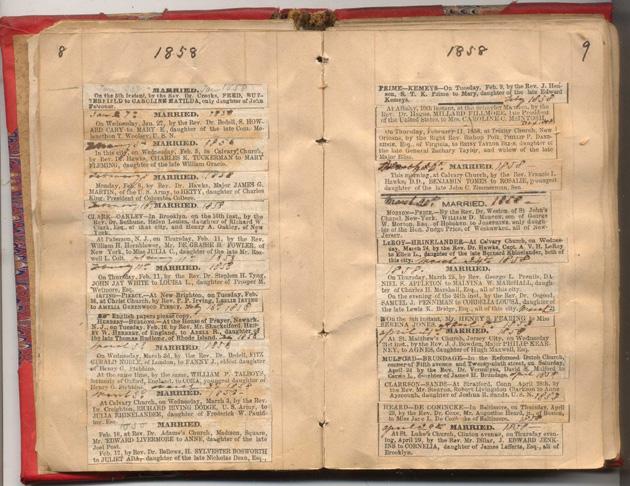 8
1858
MARRIED.
On the 5th instant, by the Rev. Dr. Crooks, FRED. BUT-
TERFIELD to CAROLINE MATILDA, only daughter of John
Falconer.
MARRIED. 1858
On Wednesday, Jan. 27, by the Rev. Dr. Bedell, S. HOW-
ARD CARY to MARY E., daughter of the late Com. Mo-
lancthon T. Woolsey, U. S. N.
MARRIED. 1858
In this city, on Wednesday, Feb. 3, in Calvary Church,
by Rev. Dr. Hawks, CHARLES K. TUCKERMAN to MARY
FLEMING, daughter of the late William Gracie.
MARRIED. 1858
Monday, Feb. 8, by Rev. Dr. Hawks, Major JAMES G.
MARTIN, of the U. S. Army, to HETTY, daughter of Charles
King, President of Columbia College.
MARRIED. 1858
CLARK—OAKLEY—In Brooklyn, on the 10th inst., by the
Rev. Dr. Bethune, Helen Louisa, daughter of Richard W.
Clark, Esq., of that city, and Henry A. Oakley, of New
At Paterson, N. J., on Thursday, Feb. 11, by the Rev.
William H. Hornblower, Mr. DE GRASSE B. FOWLER, of
New York, to Miss JULIA C., daughter of the late Mr. Ros-
well L. Colt.
MARRIED. 1858
On Thursday, Feb. 11, by the Rev. Dr. Stephen H. Tyng,
JOHN JAY WHITE to LOUISA L., daughter of Prosper M.
Wetmore, Esq.
IRVING—PIERCY.—At New Brighton, on Tuesday, Feb.
16, at Christ Church, by Rev. P. P. Irving, LESLIE IRVING
to AMELIA GREENWOOD PIERCY.
English papers please copy.
HERBERT—BUDLONG.—At the House of Prayer, Newark,
N. J., on Tuesday, Feb. 16, by Rev. Mr. Shackelford, HEN-
RY W. HERBERT, of England, to ADELA R., daughter of
the late Thomas Budlong, of Rhode Island.
MARRIED.
On Wednesday, March 3d, by the Rev. Dr. Bedell, FITZ
GERALD NOBLE, of London, to FANNY J., eldest daughter
of Henry G. Stebbins.
At the same time, by the same, WILLIAM P. TALBOYS,
formerly of Oxford, England, to CORA, youngest daughter of
Henry G. Stebbins.
MARRIED.
At Calvary Church, on Wednesday, March 3, by the Rev.
Dr. Creighton, RICHARD IRVING DODGE, U. S. Army, to
JULIA RHINELANDER, daughter of Frederick W. Pauld-
ing, Esq.
MARRIED.
Feb. 16, at Rev. Dr. Adams's Church, Madison Square,
Mr. EDWARD LIVERMORE to ANNE, daughter of the late
Joel Post.
Feb. 17, by Rev. Dr. Bellows, H. SYLVESTER BOSWORTH
to JULIET ADA, daughter of the late Nicholas Dean, Esq.
1858
9
PRIME—KEMEYS—On Tuesday, Feb. 9, by the Rev. J. Hen-
son, S. T. K. Prime to Mary, daughter of the late Edward
Kemeys. Feby 1858
At Albany, 10th instant, at the Schuyler Mansion, by the
Rev. Dr. Hague, MILLARD FILLMORE, late President
of the United States, to Mrs. CAROLINE C. McINTOSH.
On Thursday, February 11, 1858, at Trinity Church, New
Orleans, by the Right Rev. Bishop Polk, PHILIP P. DAND-
RIDGE, Esq., of Virginia, to BETTY TAYLOR BLISS, daughter of
the late General Zachary Taylor, and widow of the late
Major Bliss.
MARRIED, 1858.
This morning, at Calvary Church, by the Rev. Francis L.
Hawks, D.D., BENJAMIN TOMES to ROSALIE, youngest
daughter of the late John C. Zimmerman, Sen.
MARRIED. 1858
MORSON—PRICE.—By the Rev. Dr. Weston, of St. John's
Chapel, New-York, WILLIAM D. MORSON, son of George
W. Morton, Esq., of Hoboken, to JOSEPHINE, only daugh-
ter of the Hon. Judge Price, of Weehawken, all of New-
Jersey.
LEROY—RHINELANDER—At Calvary Church, on Wednes-
day, March 24, by the Rev. Dr. Hawks, Capt. A. V. H. LeRoy
to Ellen L., daughter of the late Bernard Rhinelander, both of
this city.
MARRIED.
On Thursday, March 25, by Rev. George L. Prentis, DA-
NIEL S. APPLETON to MALVINA W. MARSHALL, daugh-
ter of Charles H. Marshall, Esq., all of this city.
On the evening of the 24th inst., by the Rev. Dr. Osgood,
SAMUEL J. FENNIMAN to CORDELIA LOUISA, daughter of
the late Lewis K. Bridge, Esq., all of this city.
On the 8th instant, Mr. HENRY S. FEARING to Miss
SERENA JONES.
MARRIED.
At St. Matthew's Church, Jersey City, on Wednesday
1st inst., by the Rev. J. J. Bowden, Major PHILIP KEAR-
NEY, to AGNES, daughter of Hugh Maxwell, Esq.
MULFORD—BRUNDAGE—In the Reformed Dutch Church,
corner of Fifth avenue and Twenty-ninth street, on Saturday,
April 24, by the Rev. Dr. Vermilyea, David S. Mulford to
daughter of James H. Brundage.
CLARKSON—SANDS—At Stratford, Conn., April 28th, by
the Rev. Mr. Stepson, Robert Livingston Clarkson to Anne
Ayscough, daughter of Joshua R. Sands, U. S. N. 1858
HEARD—DE CONINCKE—In Baltimore, on Thursday, April
29, by the Rev. Dr. Coxe, Mr. Augustine Heard, of
to Miss Jane L. De Conincke, of Baltimore.
MARRIED. 1858
At St. Luke's Church, Clinton avenue, on Thursday even-
ing, April 29, by the Rev. Mr. Diller, J. EDWARD JENK-
INS to CORNELIA, daughter of James Lefferts, Esq., all of
Brooklyn.